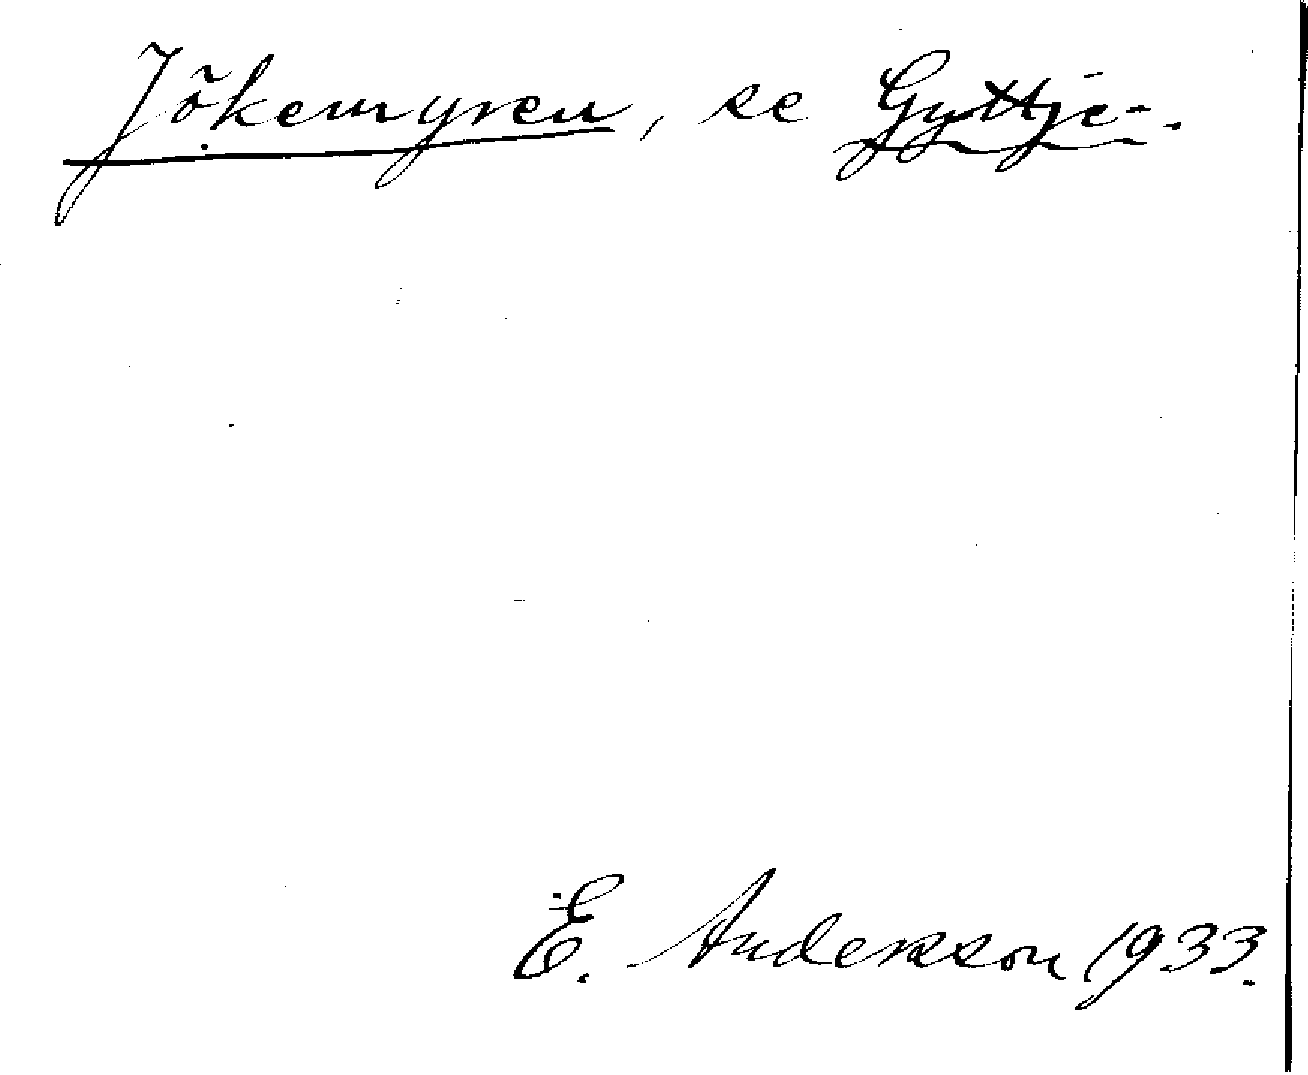 Jökemyren, se Gyttje-.
E. Andersson 1933.